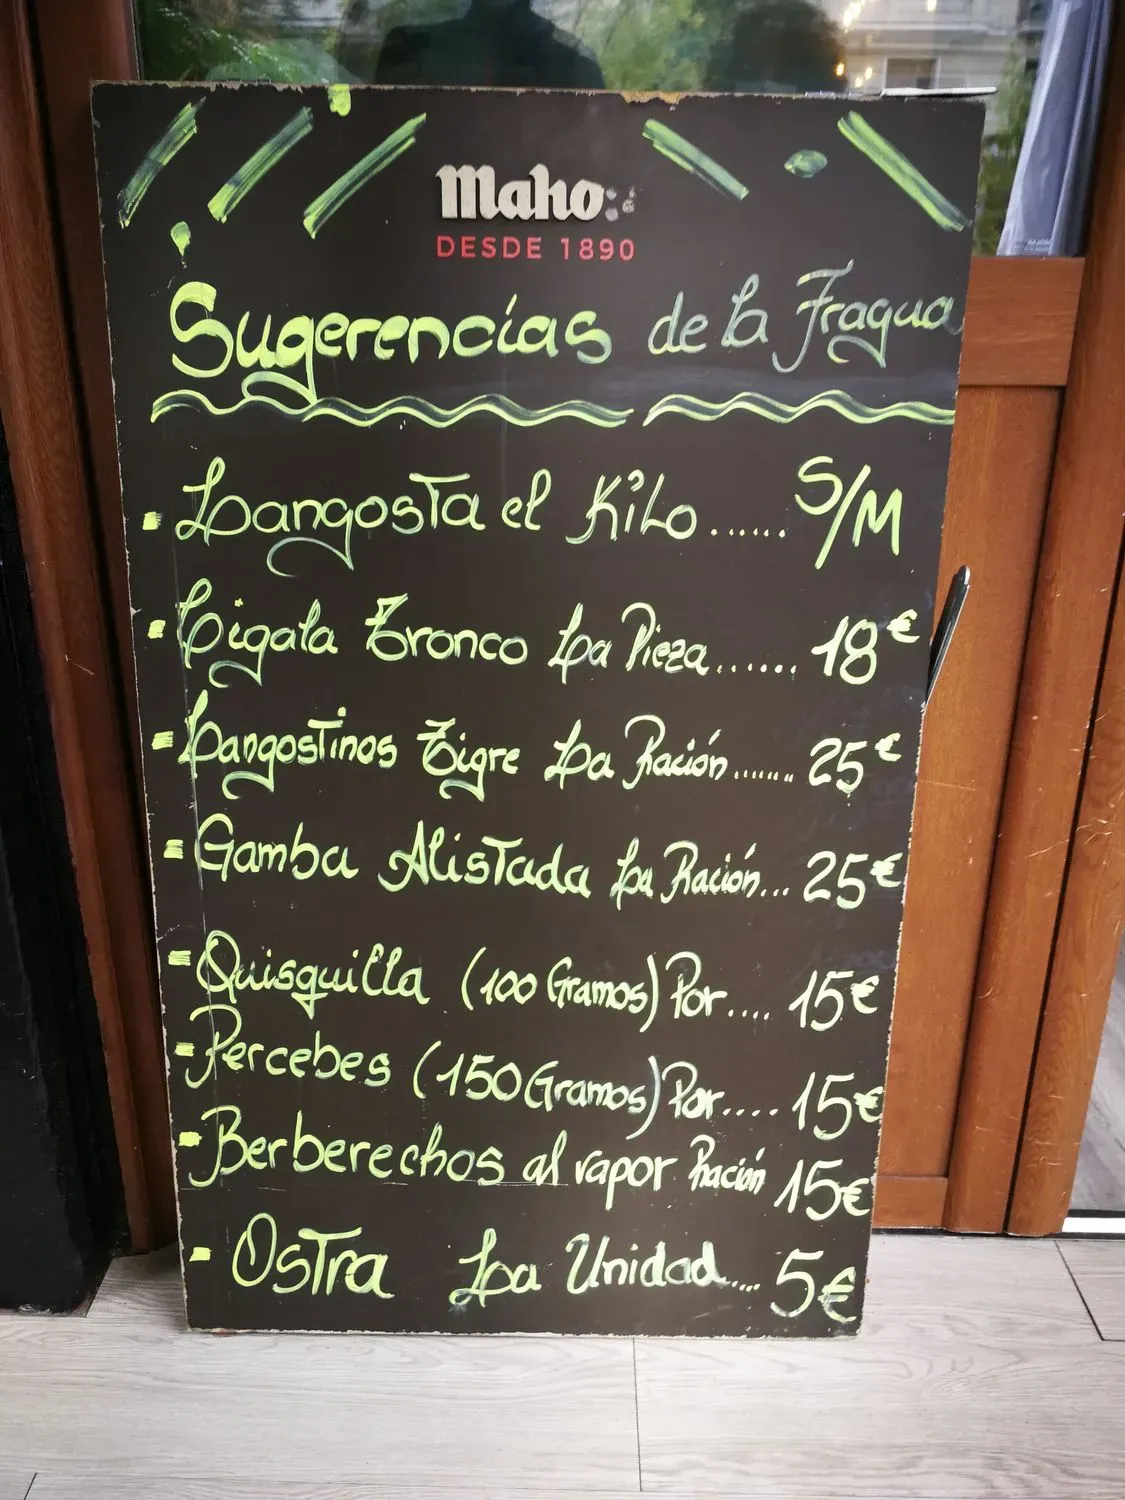 Maho
DESDE 1890
Sugerencias de la Fragua
Langosta el Kilo...... S/M
Cigala Tronco La Pieza...... 18€
Langostinos Tigre La Ración....... 25€
Gamba Alistada La Ración... 25€
Quisquilla (100 Gramos) Por.... 15€
Percebes (150 Gramos) Por.... 15€
Berberechos al vapor Ración 15€
Ostra La Unidad.... 5€